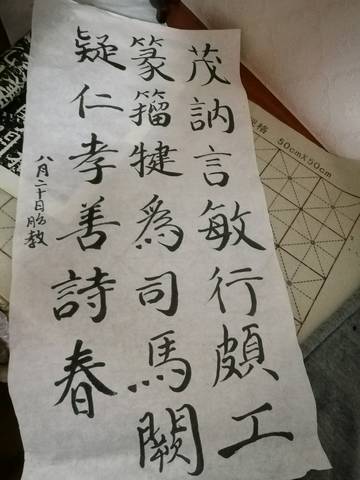 茂訥言敏行頗工
篆籀犍爲司馬闕
疑仁孝善詩春
八月二十日胎教
规格 50cm×50cm